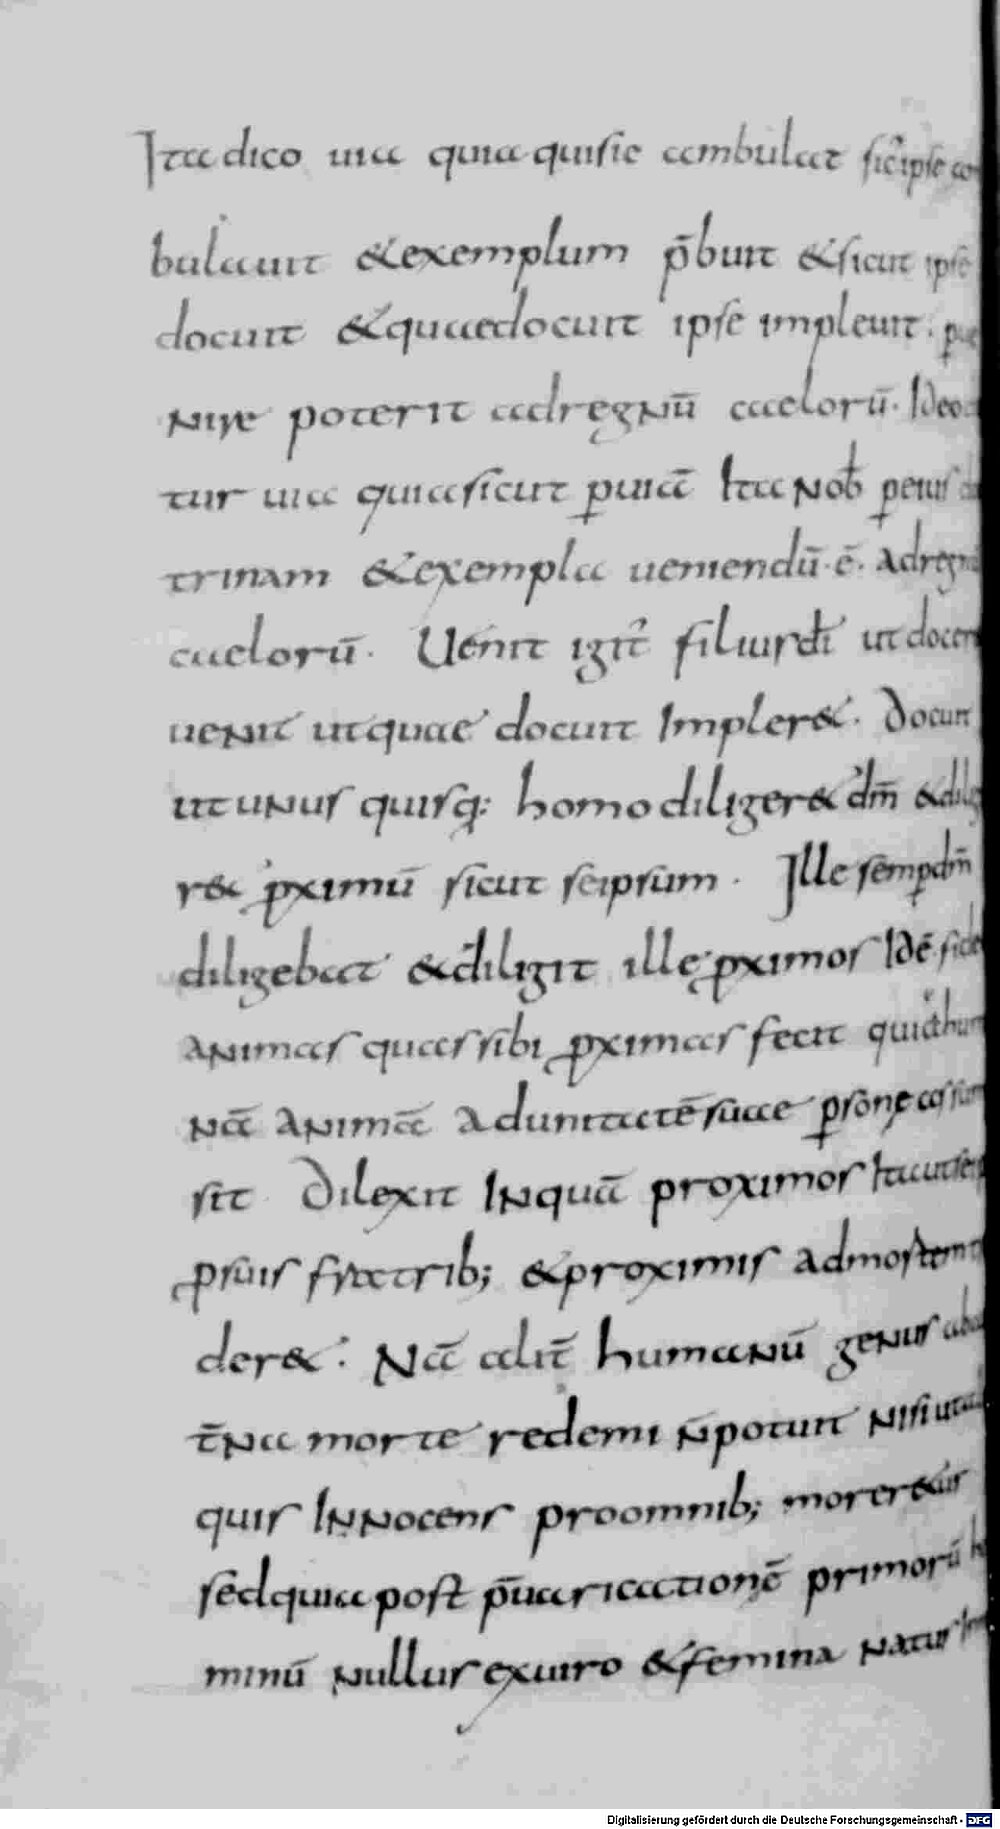 Ita dico uia quia qui sic ambulat sic ipse
bulauit & exemplum p̄buit & sicut ipse
docuit & quae docuit ipse impleuit.
nire poterit ad regnū caelorū. Ideo
tur uia quia sicut p uiā Ita nob̄ p eius
trinam & exempla ueniendū·ē· ad regn
caelorū. Uenit igit̄ filius dī ut docer
uenit ut quae docuit Impler&. Docuit
ut unus quisq; homo diliger& dm̄ & dilig
r& pximū sicut seipsum. Ille semp dm̄
diligebat & diligit ille pximos Idē·fide
animas quas sibi pximas fecit quia hum
nā animā ad unitatē suae psone
sit Dilexit Inquā proximos Ita ut se
p suis fratrib; & proximis ad mortem
der&. Nā alit̄ humanū genus
t̄na morte redemi n̄ potuit nisi ut
quis Innocens pro omnib; morer&ur
sed quia post p̄uaricationē primorū
minū nullus ex uiro & femina natus
Digitalisierung gefördert durch die Deutsche Forschungsgemeinschaft - DFG